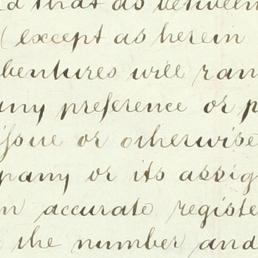 d that as between
( except as herein
bentures will ran
any preference or p
issue or otherwise
pany or its assig
n accurate registe
the number and